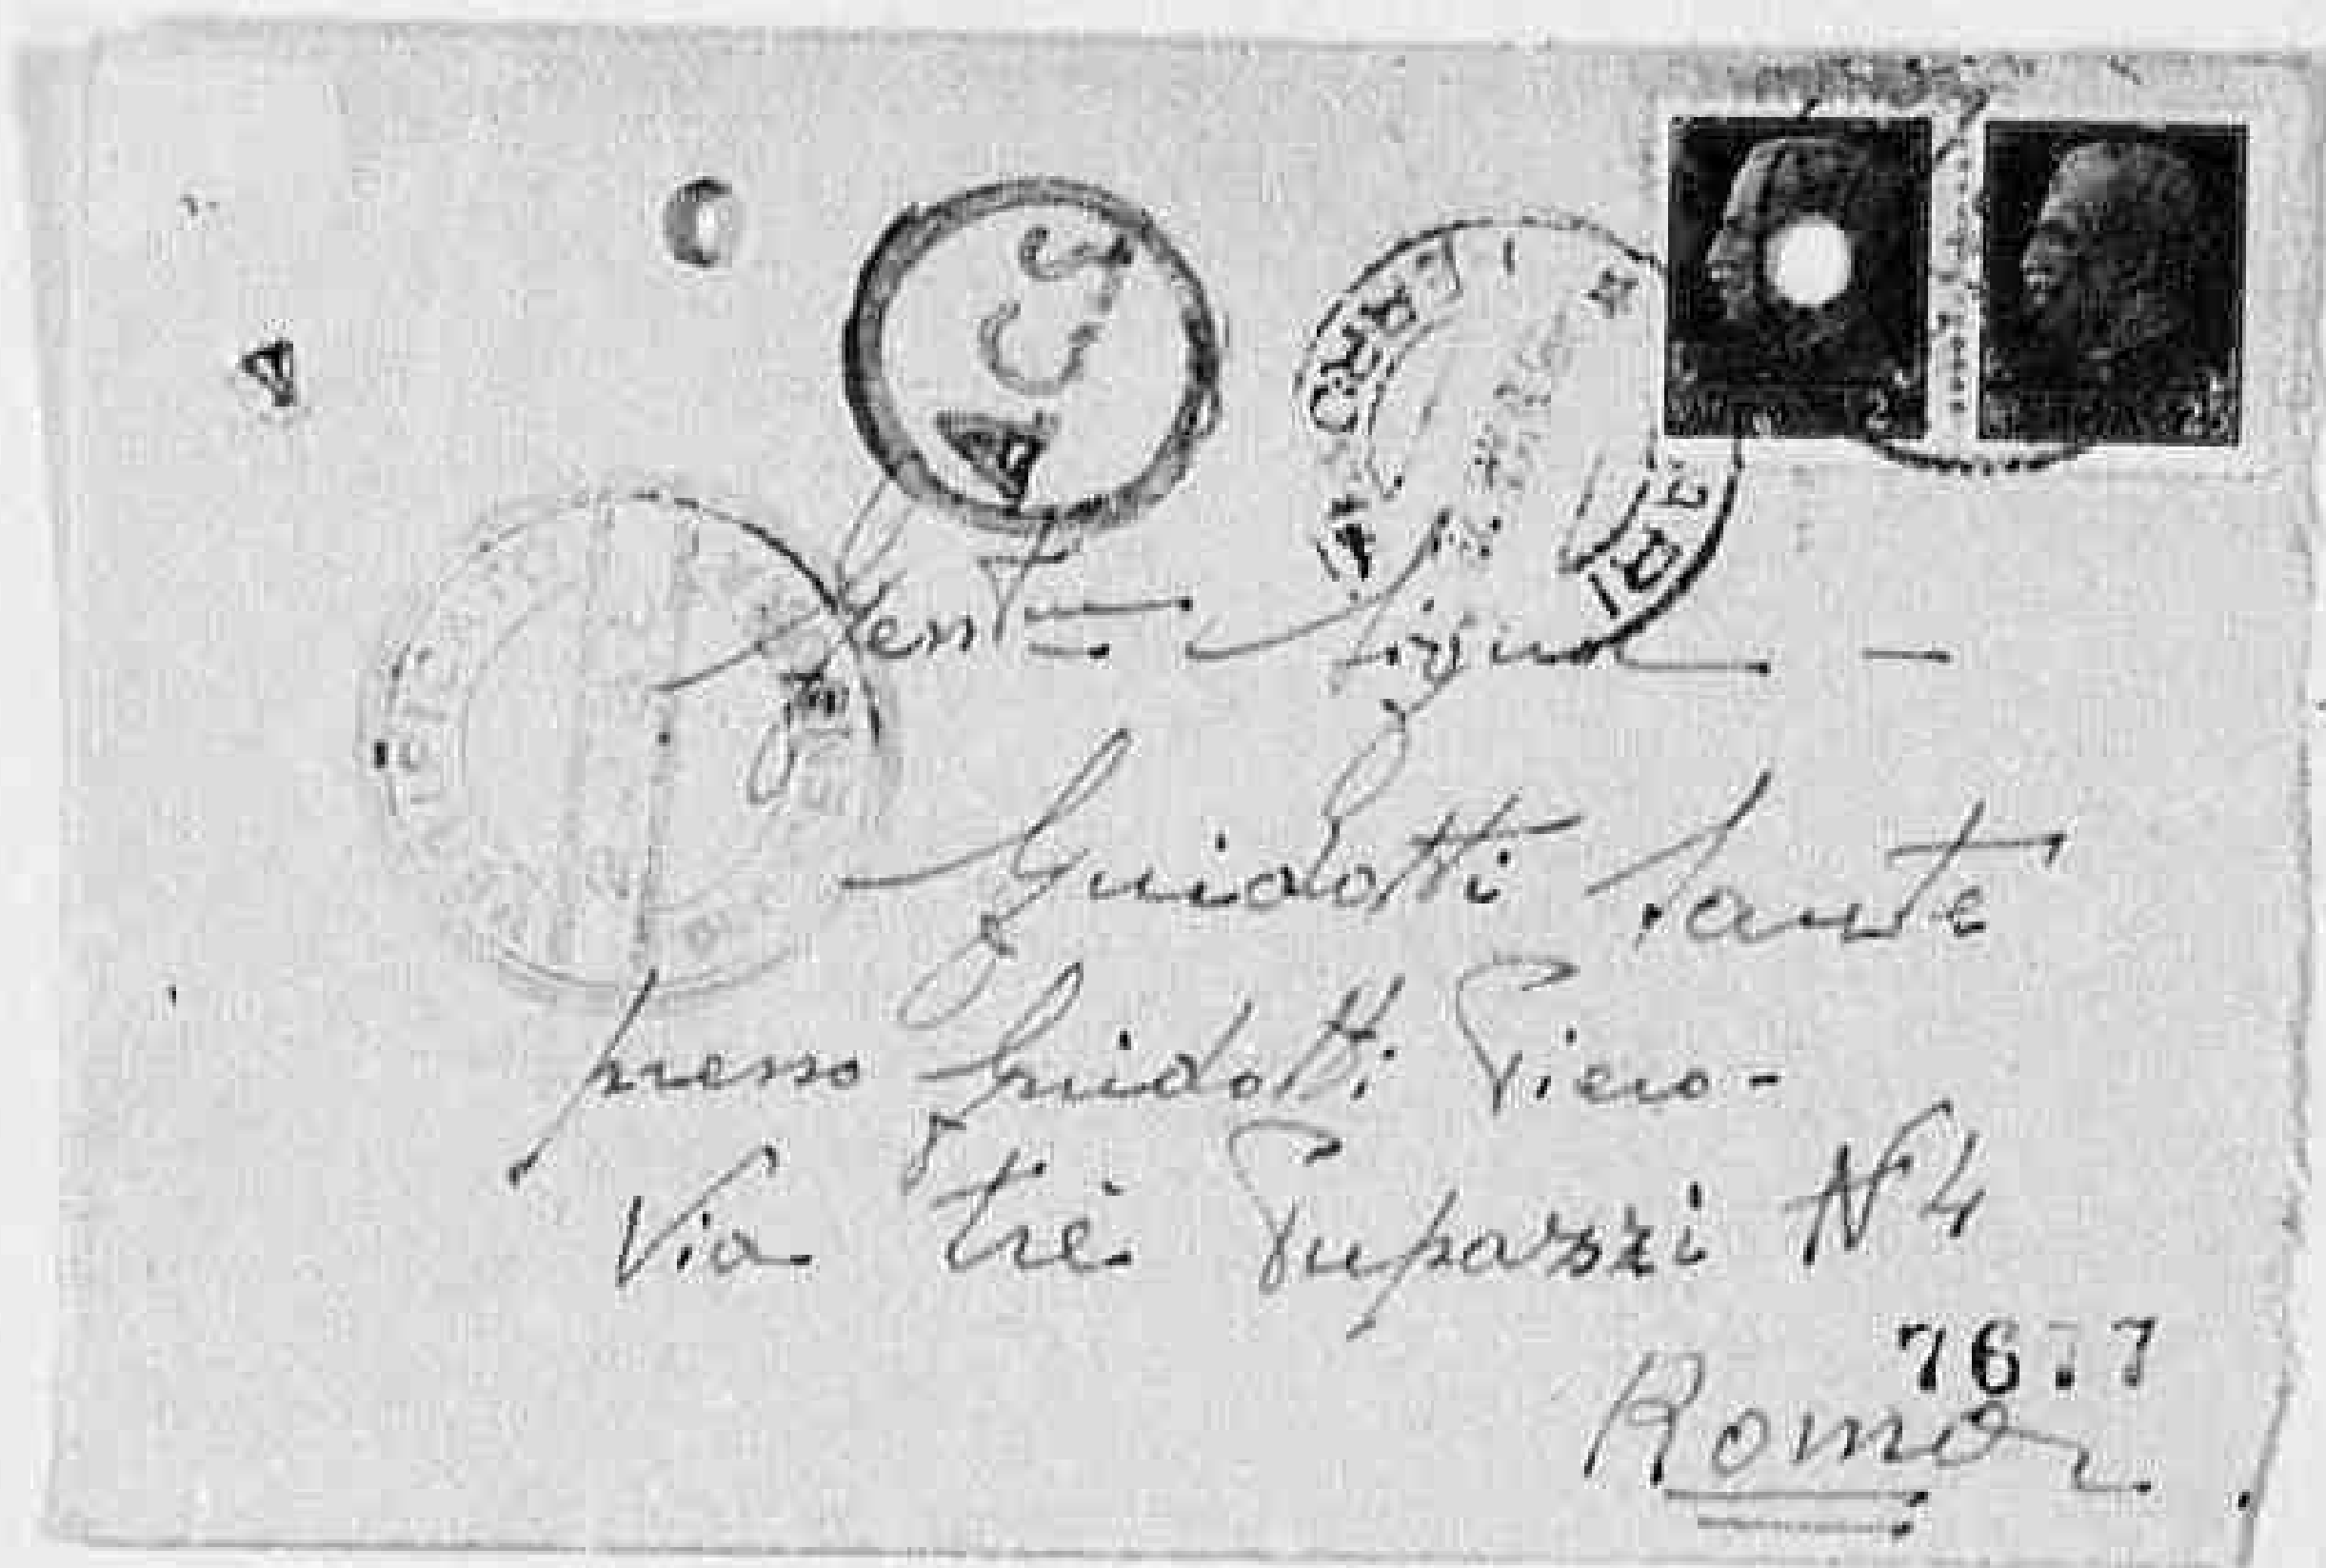 A
ACS
Gent. Signor
Guidotti Sante
presso Guidotti Piero-
Via Tre Pupazzi N 4
7677
Roma